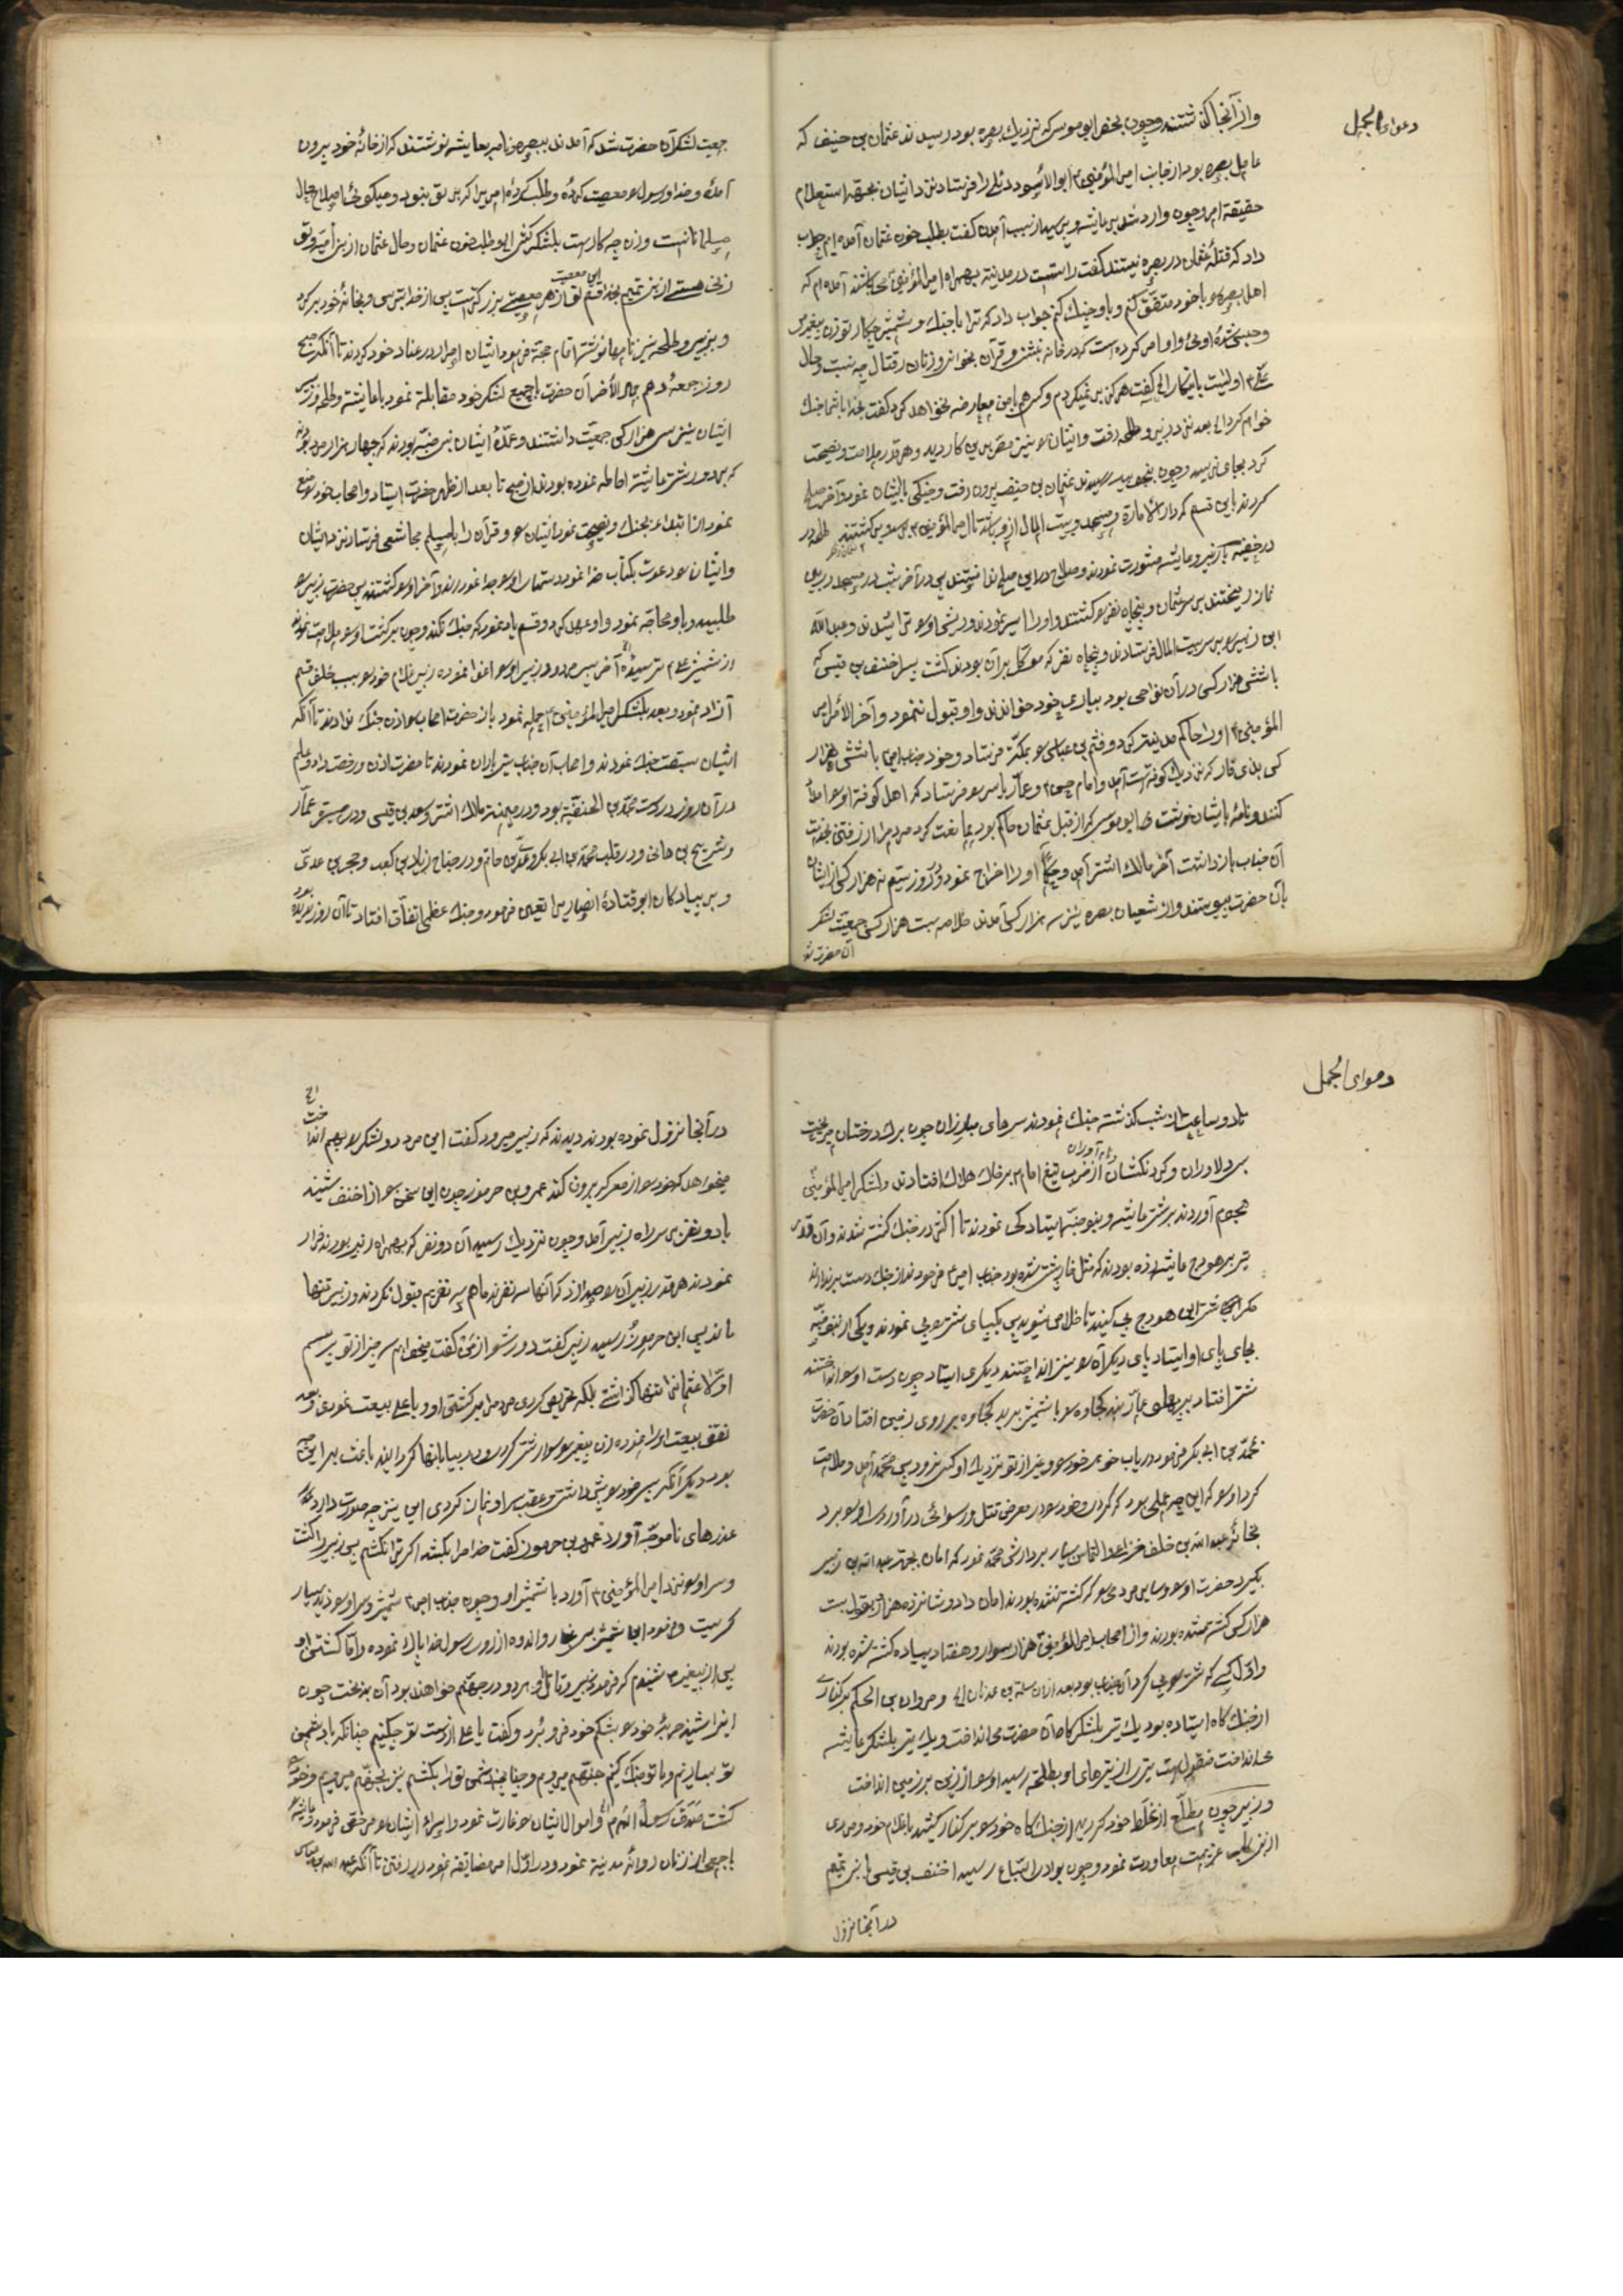 دعوای الجمل
واز آنجا گذشتند وچون بحفر ابو موسی که نزدیك بصره بود رسیدند عثمان بن حنیف که
عامل بصره بود از جانب امیر المؤمنین ابو الأسود دئلی را فرستاد نزد ایشان بجهة استعلام
حقیقة امر وچون وارد شد بر عایشه وپرسید از سبب آمدن گفت بطلب خون عثمان آمده ایم جواب
داد که قتلهٔ عثمان در بصره نیستند گفت راست در مدینه بهمراه امیر المؤمنین میباشند آمده ام که
اهل بصره را با خود متفّق کنم وباو جنك کنم جواب داد که ترا با جنك وشمشیر چکار تو زن پیغمبری
وحبس شدهٔ اوئی واو امر کرده است که در خانه بنشینی وقرآن بخوانی وزنان را قتال جه نسبت وحال
خواهم کرد بعد نزد زبیر وطلحه رفت وایشان را نیز مصرّ بر این کار دید وهر قدر ملامت ونصیحت
کرد بجای نرسید وچون ببصره رسیدند عثمان بن حنیف بیرون رفت وجنکی با ایشان نمود وآخر صلح
کردند باین قسم که دار الأمارة ومسجد وبیت المال از او باشد تا امیر المؤمنین برسد وبر کشتند طلحه در
در خفیه با زبیر وعایشه مشورت نمودند وصلاح در این صلح ندانستند پس در آخر شب در مسجد در بین
نماز ریختند بر سر عثمان وپنجاه نفر را کشتند واو را اسیر نمودند وریش او را تراشیدند وعبد اللّه
ابن زبیر را بر سر بیت المال فرستادند وپنجاه نفر که موکّل بر آن بودند کشت پس احنف بن قیس که
با شش هزار کس در آن نواحی بود بیاری خود خواندند واو قبول ننمود وآخر الأمر امیر
المؤمنین او را حاکم مدینه کرد وقثم بن عباس را بمکّه فرستاد وخود جناب امیر با شش هزار
کس بذی قار که نزدیك کوفه است آمد وامام حسن وعمّار یاسر را فرستاد که اهل کوفه را
کنند ونامهٔ بایشان نوشت ابو موسی که از قبل عثمان حاکم بود ممانعت کرد مردم را از رفتن بخدمت
آن جناب باز داشت آخر مالك اشتر آمد واو را اخراج نمود ودر روز سیّم نه هزار کس از ایشان
بآن حضرت پیوستند واز شیعیان بصره نیز سه هزار کس آمدند خلاصه بیست هزار کس جمعیت لشکر
آن حضرت شد
جمعیت لشکر آن حضرت شد که آمدند ببصره ونامه بعایشه نوشتند که از خانهٔ خود بیرون
آمدهٔ وخدا ورسول را معصیت کردهٔ وطلب کردهٔ امری را که بر تو نبود ومیکوئی اصلاح حال
مسلمانانست وزن جه کار است بلشکر کشی وطلب خون عثمان وحال عثمان از بنی أمیه وتو
زنی هستی از بنی تمیم بخدا قسم از هر معصیتی بزرکتر است پس از خدا بترس وبخانهٔ خود برکرد
وبزبیر وطلحه نیز نامها نوشتند اتمام حجّة فرمود ایشان اصرار در عناد خود کردند تا آنکه صبح
روز جمعهٔ دهم جمادی الأخر آن حضرت با جمیع لشکر خود مقابلة نمود با عایشه وطلحه وزبیر
ایشان نیز سی هزار کس جمعیّت داشتند وعمدهٔ ایشان بنی ضبّه بودند که چهار هزار مرد بودند
که بر دور شتر عایشه احاطه نموده بودند از صبح تا بعد از ظهر حضرت ایستاد واصحاب خود را منع
نمود از ابتدای بجنك ونصیحت نمود ایشان را وقرآن را با مسلم مجاشعی فرستاد نزد ایشان
وایشان را دعوت بکتاب خدا نمود دستهای او را جدا نمودند وآخر او را کشتند پس حضرت زبیر را
طلبید وباو محاجّه نمود واو عهد کرد وقسم یاد نمود که جنك نکند وچون بر کشت او را ملامت نمودند
از شمشیر علی ترسیدهٔ آخر پسر مردود زبیر او را اغوا نموده زبیر غلام خود را بسبب خلف قسم
آزاد نمود وبعد بلشکر امیر المؤمنین حمله نمود باز حضرت اصحاب را اذن جنك ندادند تا آنکه
ایشان سبقت جنك نمودند واصحاب آن جناب تیر باران نمودند تا حضرت اذن ورخصت داد وعلم
در آن روز در دست محمّد بن الحنفیّه بود ودر میمنه مالك اشتر وسعد بن قیس ودر میسره عمّار
وشریح بن هانی ودر قلب محمّد بن ابی بکر وعدی بن حاتم ودر جناح زیاد بن کعب وحجر بن عدی
وبر پیادکان ابو قتادهٔ انصاری را تعیین فرمود وجنك عظیم اتفّاق افتاد تا آن روز
دعوای الجمل
تا دو ساعت از شب کذشته جنك نمودند سرهای مبارزان چون برك درختان میریخت
سر دلاوران وکردنکشان از ضرب تیغ امام بر خاك هلاك افتادند ولشکر امیر المؤمنین
هجوم آوردند بر شتر عایشه وبنو ضبّه ایستادکی نمودند تا اکثر در جنك کشته شدند وآن قدر
تیر بر هودج عایشه زده بودند که مثل خار پشت شده بود جناب امیر فرمودند از جنك دست بر ندارند
مکر شتر این هودج پی کنید تا خلاص شوید پس یکپای شتر را پی نمودند ویکی از بنو ضبّه
بجای پای او ایستاد پای دیکر آن را نیز انداختند دیکری ایستاد چون دست او را انداختند
شتر افتاد بر پهلو عمّار بند کجاوه را با شمشیر برید کجاوه بر روی زمین افتاد آن حضرت
بمحمّد بن ابی بکر فرمود دریاب خواهر خود را وغیر از تو نزدیك او کس نرود پس محمّد آمد وملامت
کرد او را که این چه عملی بود که کردی وخود را در معرض قتل ورسوائی در آوردی او را برد
بخانهٔ عبد اللّه بن خلف خزاعی والتماس بسیار ببرادرش محمّد نمود که امان بجهة عبد اللّه بن زبیر
بکیرد حضرت او را وسایر مردمی را که کشته نشده بودند امان داد وشانزده هزار بقول بیست
هزار کس کشته شده بودند واز اصحاب امیر المؤمنین هزار سوار وهفتاد پیاده کشته شده بودند
واوّل کسی که شتر را پی کرد آن جناب بود بعد از آن ومروان بن الحکم بر کناری
از جنك کاه ایستاده بود یك تیر بلشکر کاه آن حضرت می انداخت ویك تیر بلشکر عایشه
می انداخت منقول است تیری از تیرهای او بطلحه رسید او را از زین بر زمین انداخت
وزبیر چون مطلّع از غلط خود کردید از جنك کاه خود را بر کنار کشید با غلام خود ومردی
از بنی کلب عزیمت معاودت نمود وچون بوادی السّباع رسید احنف بن قیس با بنی تمیم
در آنجا نزول
در آنجا نزول نموده بودند دیدند که زبیر میرود کفت این مرد دو لشکر را بهم انداخت
میخواهد که خود را از معرکه بیرون کند عمرو بن جرموز چون این سخن را از احنف شنید
با دو نفر بر سر راه زبیر آمد وچون نزدیك رسید آن دو نفر که بهمراه زبیر بودند فرار
نمودند هر قدر زبیر آن را صدا زد که آنها سه نفرند ما هم سه نفریم قبول نکردند وزبیر تنها
ماند پس ابن جرموز رسید زبیر کفت دور شو از من کفت میخواهم سه چیز از تو بپرسم
اوّلا عثمانرا تنها کذاشتی بلکه تحریص کردی مردم را بر کشتن او وبا علی بیعت نمودی وبعد
نقض بیعت او را نموده زن پیغمبر را سوار شتر کرده در بیابانها کردانید باعث بر این چه
بود دیکر آنکه پسر خود را پیش داشتی وعقب سر او نماز کردی این نیز چه صورت دارد
عذرهای ناموجّه آورد عمرو بن جرموز کفت خدا مرا بکشد اکر ترا نکشم پس زبیر را کشت
وسر او را نزد امیر المؤمنین آورد با شمشیر او وچون جناب امیر شمشیر وسر او را دید بسیار
کریست وفرمود این شمشیر بسی غبار واندوه از روی رسول خدا پاك نموده وامّا کشتن او
پس از پیغمبر شنیدم که فرمود زبیر وقاتل او هر دو در جهنّم خواهند بود آن بدبخت چون
اینرا شنید حربهٔ خود را بشکم خود فرو برد وکفت یا علی از دست تو چکنیم چنانکه با دشمن
تو بسازیم وبا تو جنك کنیم جهنّم میرویم وچنانچه دشمن تو را بکشیم نیز بجهنّم میرویم وخود را
کشت صَدَقَ رَسولُ اللّه واموال ایشان را غارت نمود واسراء ایشان را مرخّص فرمود وعایشه را
با جمعی از زنان روانهٔ مدینة نمود ودر اوّل امر مضایقه نمود در رفتن تا آنکه عبد اللّه بن عباس